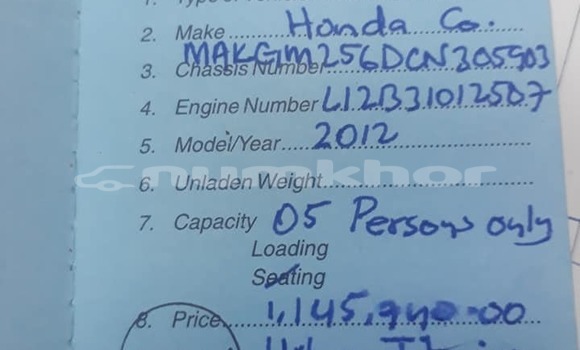 2. Make Honda Co.
3. Chassis Number MAKGM256DCN305903
4. Engine Number L12B31012507
5. Model/Year 2012
numkhor
6. Unladen Weight
7. Capacity 05 Persons only
Loading
Seating
8. Price 1,145,940.00